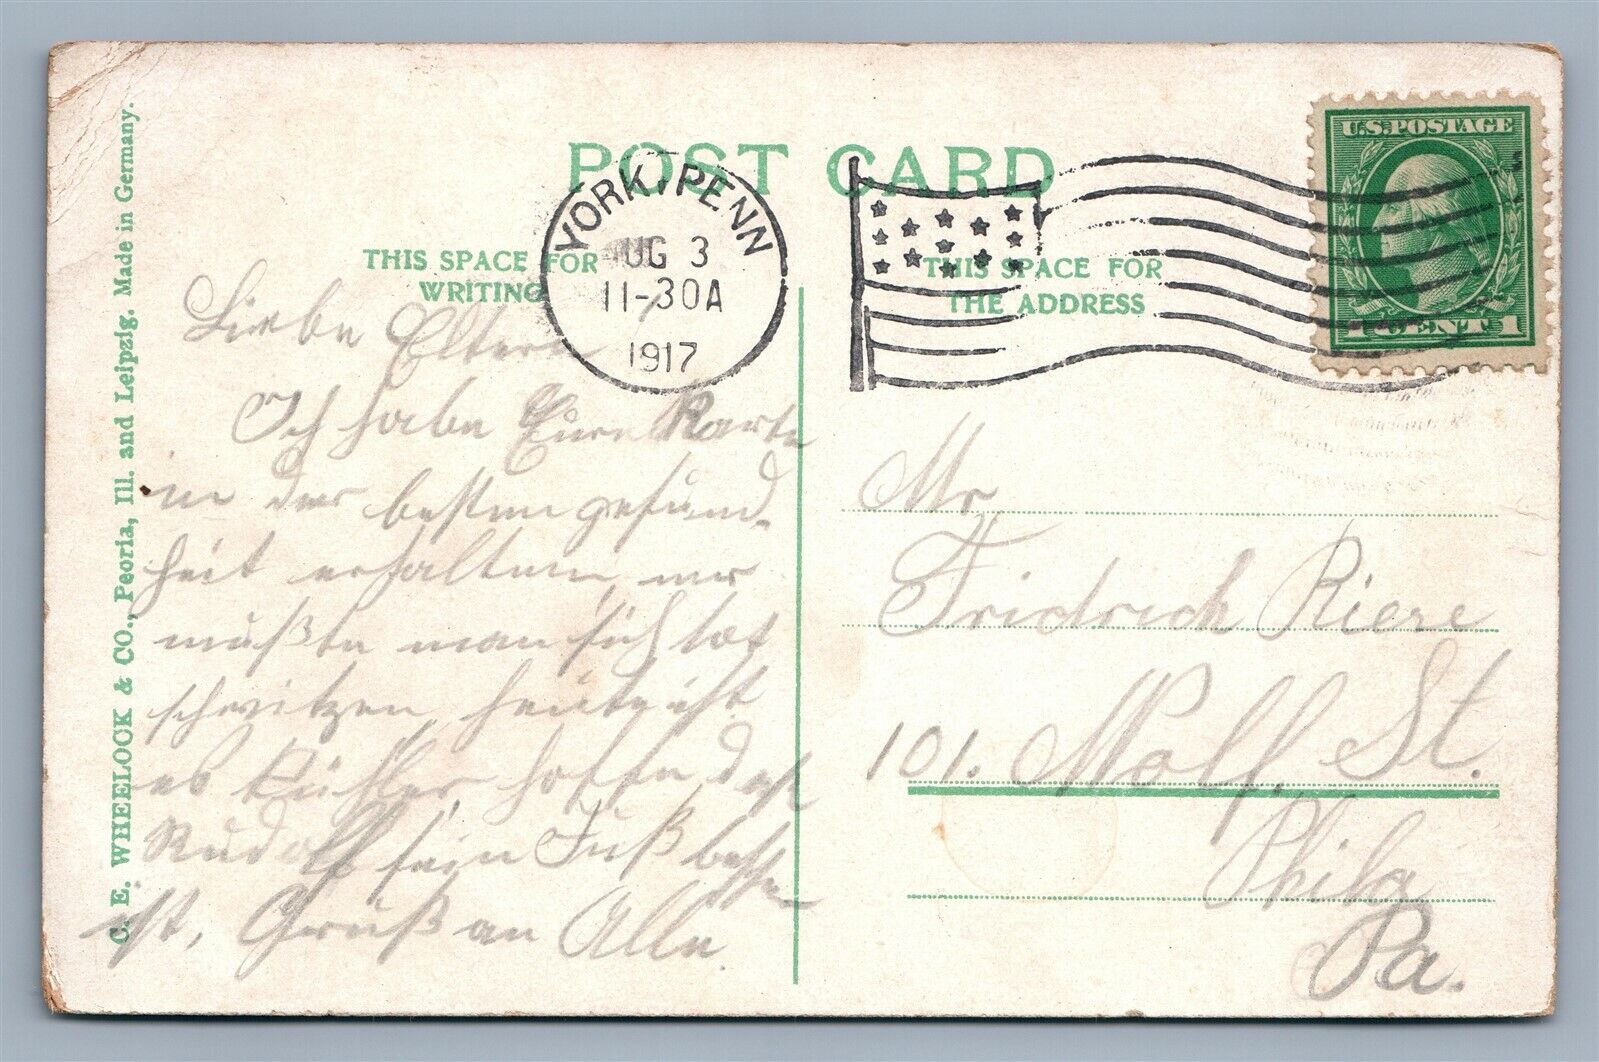 POST CARD
THIS SPACE FOR
WRITING
THIS SPACE FOR
THE ADDRESS
YORK, PENN
AUG 3
11-30A
1917
U.S. POSTAGE
1 CENT 1
C. E. WHEELOCK & CO., Peoria, Ill. and Leipzig. Made in Germany.
Liebe Eltern
Ich habe Eure Karte
in der besten gesund-
heit erhalten,
mußte man sich
schwitzen, heute ist
es kühler hoffe daß
Rudolf sein Fuß besser
ist, Gruß an Alle.
Mr
Fridrich Riere
101. St.
Phila
Pa.